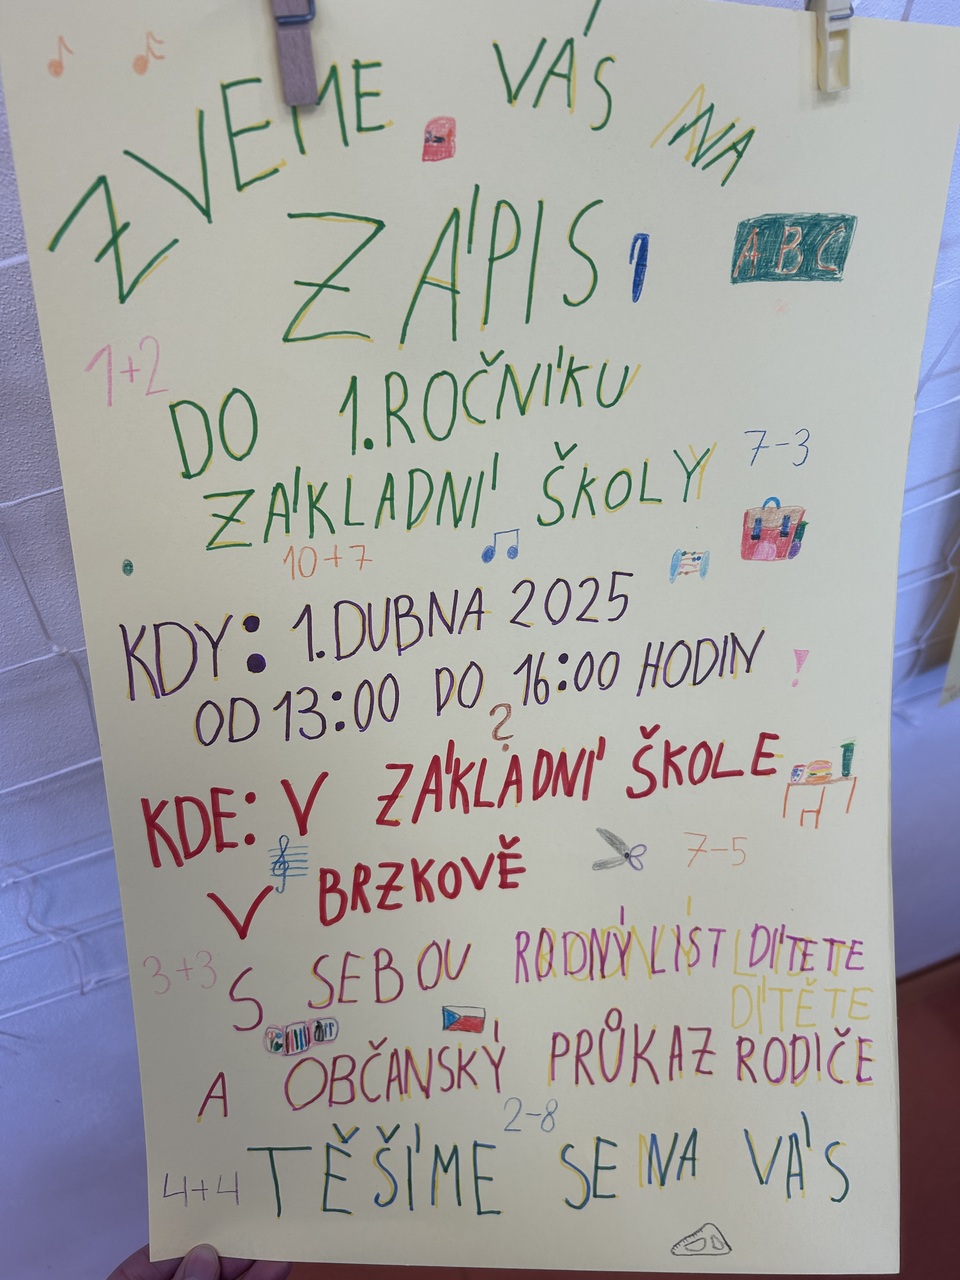 ZVEME VÁS NA
ZÁPIS
ABC
1+2
DO 1.ROČNÍKU
ZÁKLADNÍ ŠKOLY
7-3
10+7
KDY: 1.DUBNA 2025
OD 13:00 DO 16:00 HODIN !
?
KDE: V ZÁKLADNÍ ŠKOLE
7-5
V BRZKOVĚ
3+3
S SEBOU RODNÝ LIST DÍTETE
DÍTĚTE
A OBČANSKÝ PRŮKAZ RODIČE
2-8
4+4
TĚŠÍME SE NA VÁS